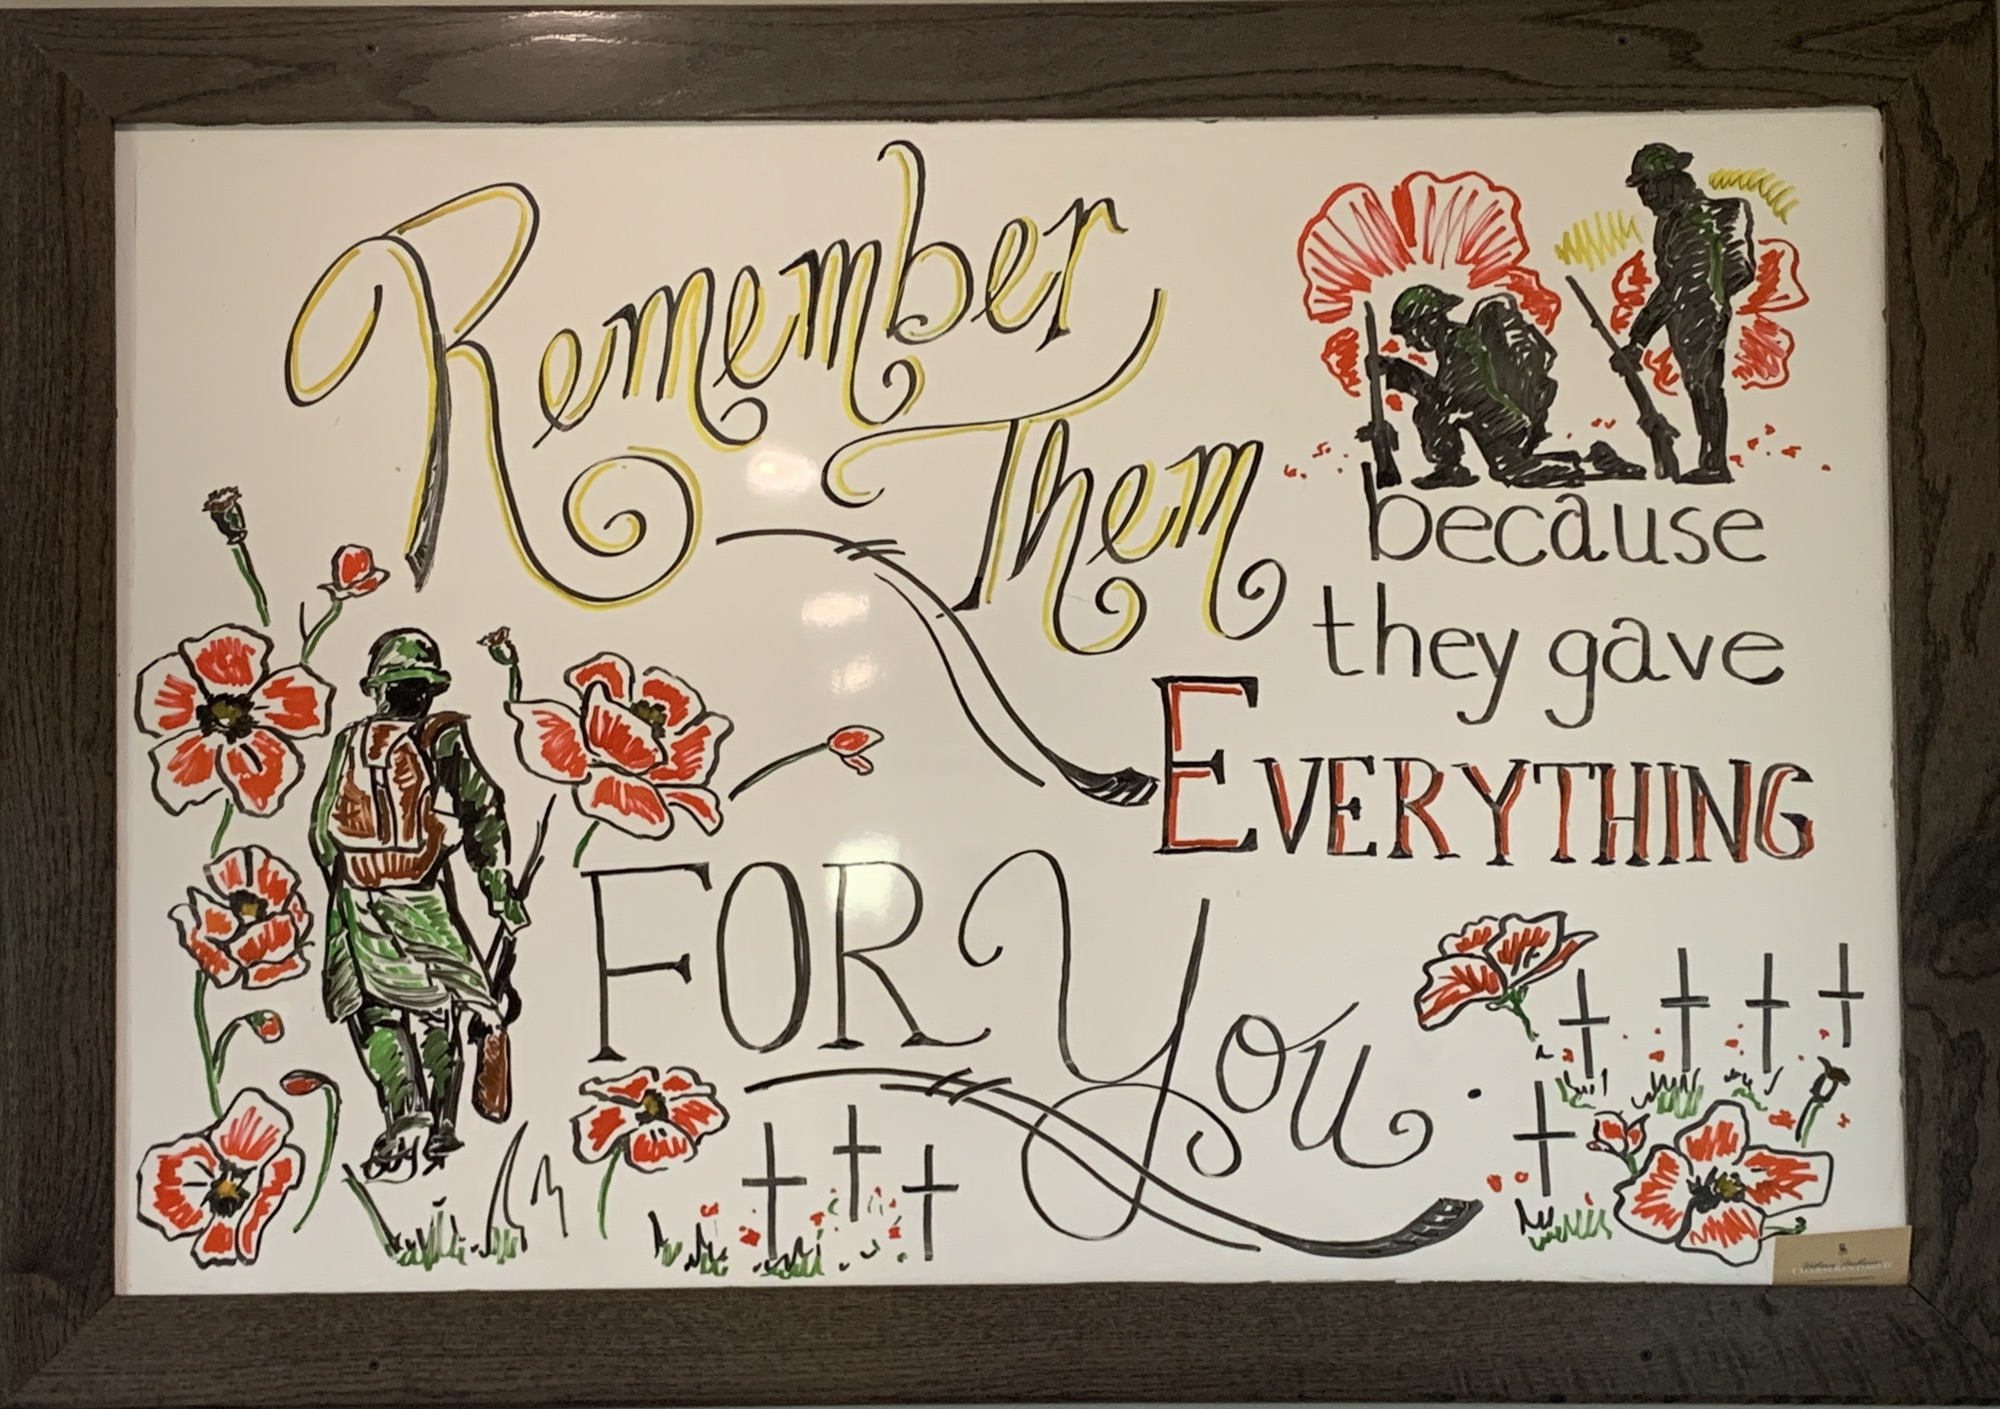 Remember
Them
because
they gave
EVERYTHING
FOR You.